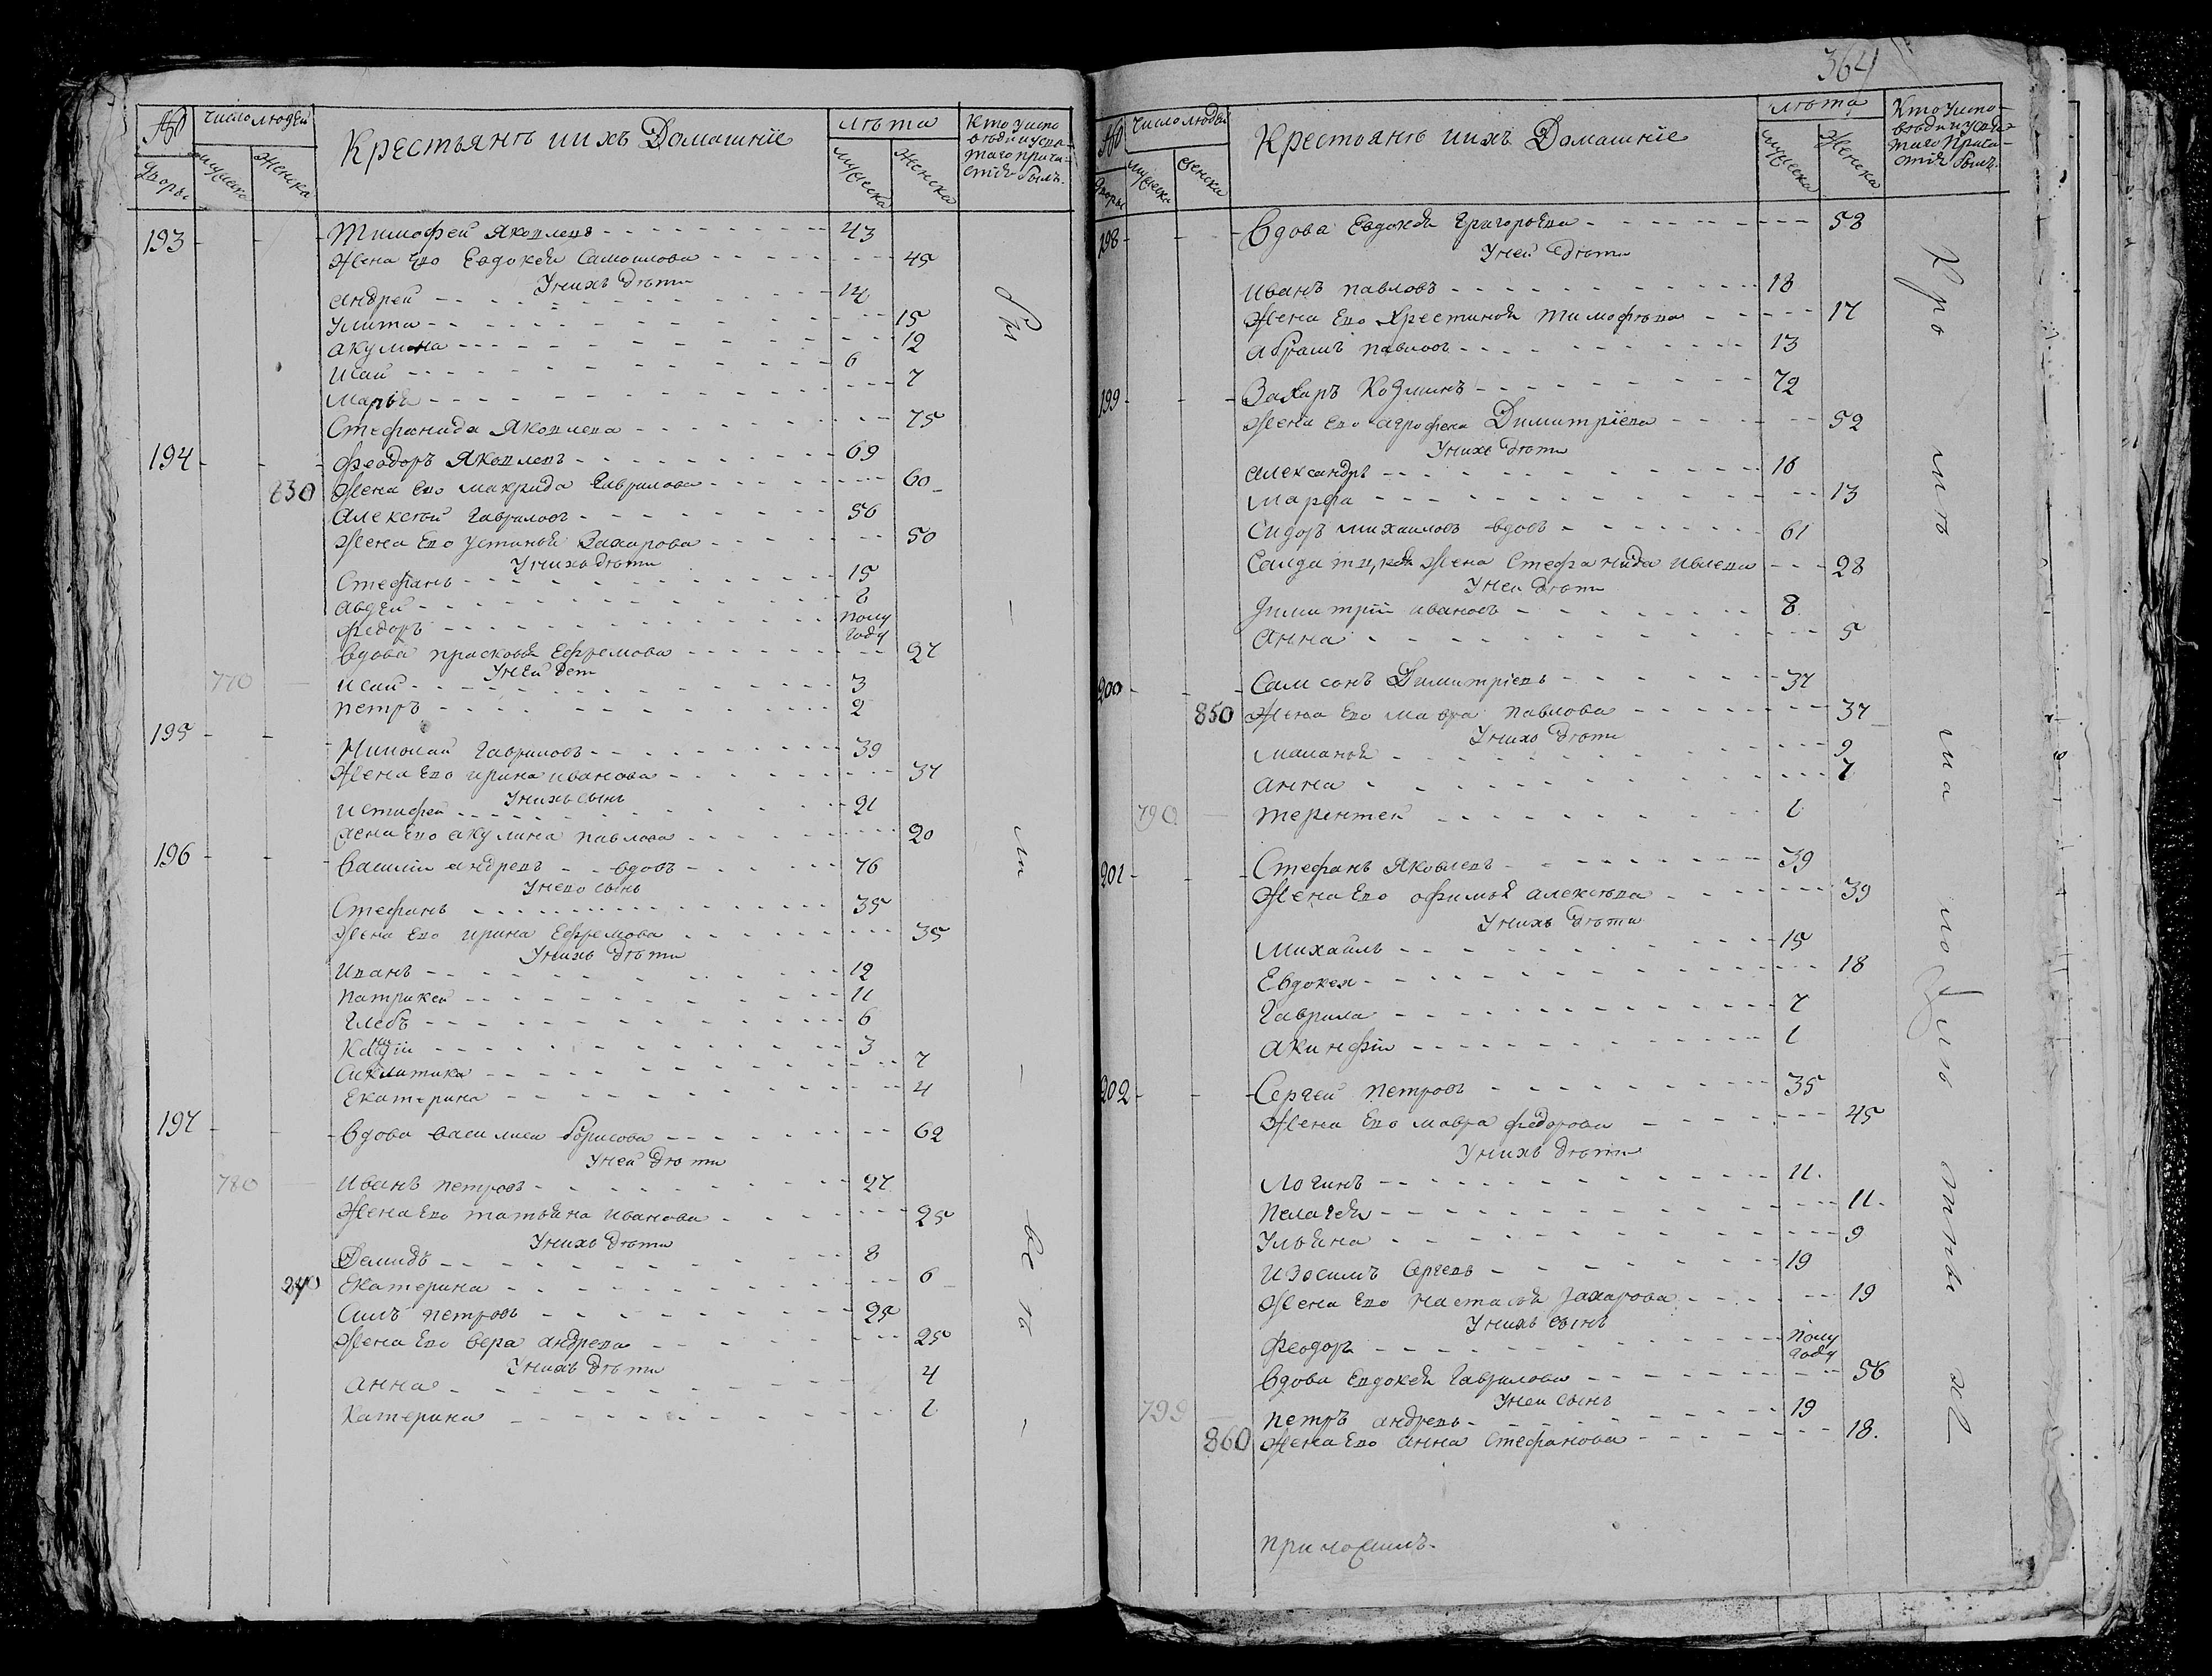 № Число людей Крестьянъ и ихъ Домашние лѣта Кто у испо
вѣди и у свя
таго прича
стия былъ.
Дворы мужеска Женска мужеска Женска
193 Тимофей Яковлевъ 43
Жена Его Евдокея Самоилова 45
У нихъ дѣти
Андрей 14
Улита 15
Акулина 12
Исаи 6
Марья 7
Стефанида Яковлева 75
194 Феодоръ Яковлевъ 69
830 Жена Его Макрида Гаврилова 60
Алексѣй Гавриловъ 56
Жена Его Устинья Захарова 50
У нихъ дѣти
Стефанъ 15
Авдей 8
Федоръ полу
году
Вдова Прасковья Ефремова 27
У ней дет
770 Исаи 3
Петръ 2
195 Николаи Гавриловъ 39
Жена Его Ирина Иванова 37
У нихъ сынъ
Истифеи 21
Жена Его Акулина Павлова 20
196 Василии Андревъ вдовъ 76
У нево сынъ
Стефанъ 35
Жена Его Ирина Ефремова 35
У нихъ дѣти
Иванъ 12
Патрикеи 11
Глебъ 6
3
Сиклитика 7
Екатерина 4
197 Вдова Василиса Борисова 62
У ней дѣти
780 Иванъ Петровъ 27
Жена Его Татьяна Иванова 25
У нихъ дѣти
Демидъ 8
840 Екатерина 6
Силъ Петровъ 25
Жена Его Вера Андрева 25
У нихъ дѣти
Анна 4
Катерина 1
364
№ Число людей Крестьянъ и ихъ Домашние лѣта Кто у испо
вѣди и у свя
таго прича
стия былъ
Дворы мужеска Женска мужеска Женска
198 Вдова Евдокея Григорьева 58
У ней дѣти
Иванъ Павловъ 18
Жена Его Крестинья Тимофѣева 17
Абрамъ Павловъ 13
199 Захаръ Козминъ 72
Жена Его Агрофена Димитриева 52
У нихъ дѣти
Александръ 16
Марфа 13
Сидоръ Михаиловъ вдовъ 61
Жена Стефанида Ивлева 28
У ней дѣти
Димитрии Ивановъ 8
Анна 5
200 Самсонъ Димитриевъ 37
850 Жена Его Мавра Павлова 37
У нихъ дѣти
Маланья 9
Анна 7
790 Терентеи 1
201 Стефанъ Яковлевъ 39
Жена Его Офимья Алексѣева 39
У нихъ дѣти
Михайлъ 15
Евдокея 18
Гаврила 7
Акинфии 1
202 Сергеи Петровъ 35
Жена Его Мавра Федорова 45
У нихъ дѣти
Логинъ 11.
Пелагея 11.
Ульяна 9
Изосимъ Сергевъ 19
Жена Его Настасья Захарова 19
У нихъ сынъ
Феодоръ полу
году
Вдова Евдокея Гаврилова 56
У ней сынъ
799 Петръ Андревъ 19
860 Жена Его Анна Стефанова 18.
приложилъ.